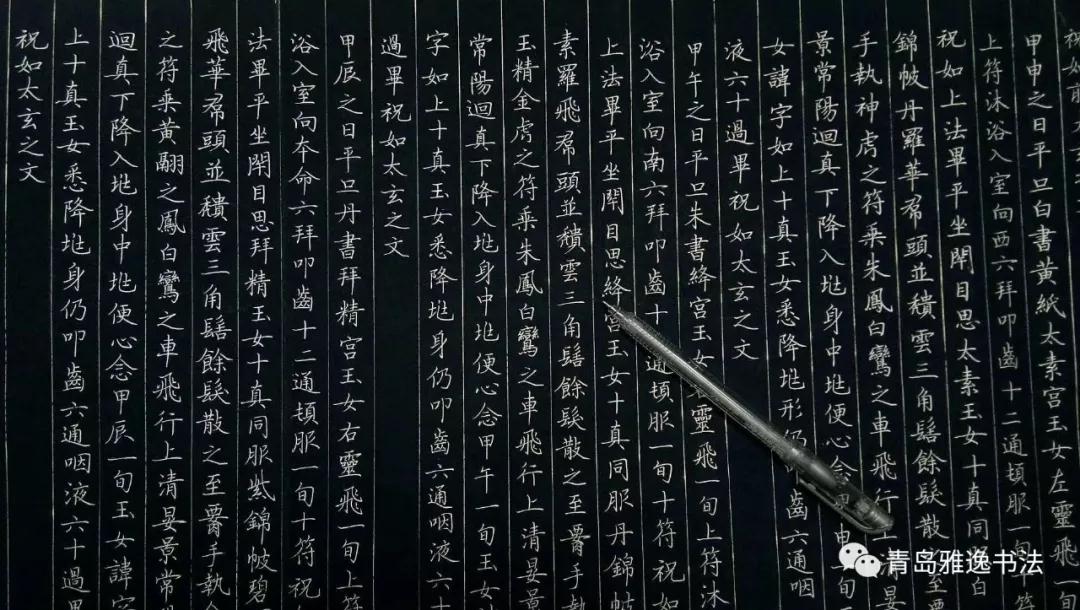 祝如前太玄
甲申之日平旦白書黃紙太素宮玉女左靈飛一旬
上符沐浴入室向西六拜叩齒十二通頓服一旬十符
祝如上法畢平坐閇目思太素玉女十真同服白
錦帔丹羅華帬頭並穨雲三角髻餘髮散至
手執神虎之符乘朱鳳白鸞之車飛行上清晏
景常陽迴真下降入兆身中兆便心念甲申一旬
女諱字如上十真玉女悉降兆形仍叩齒六通咽
液六十過畢祝如太玄之文
甲午之日平旦朱書絳宮玉女右靈飛一旬上符沐
浴入室向南六拜叩齒十二通頓服一旬十符祝如
上法畢平坐閇目思絳宮玉女十真同服丹錦帔
素羅飛帬頭並穨雲三角髻餘髮散之至䐡手
玉精金虎之符乘朱鳳白鸞之車飛行上清晏景
常陽迴真下降入兆身中兆便心念甲午一旬玉女
字如上十真玉女悉降兆身仍叩齒六通咽液六十
過畢祝如太玄之文
甲辰之日平旦丹書拜精宮玉女右靈飛一旬上符
浴入室向本命六拜叩齒十二通頓服一旬十符祝
法畢平坐閇目思拜精玉女十真同服紫錦帔碧
飛華帬頭並穨雲三角髻餘髮散之至䐡手執
之符乘黃翮之鳳白鸞之車飛行上清晏景常
迴真下降入兆身中兆便心念甲辰一旬玉女諱字
上十真玉女悉降兆身仍叩齒六通咽液六十過畢
祝如太玄之文
青岛雅逸书法